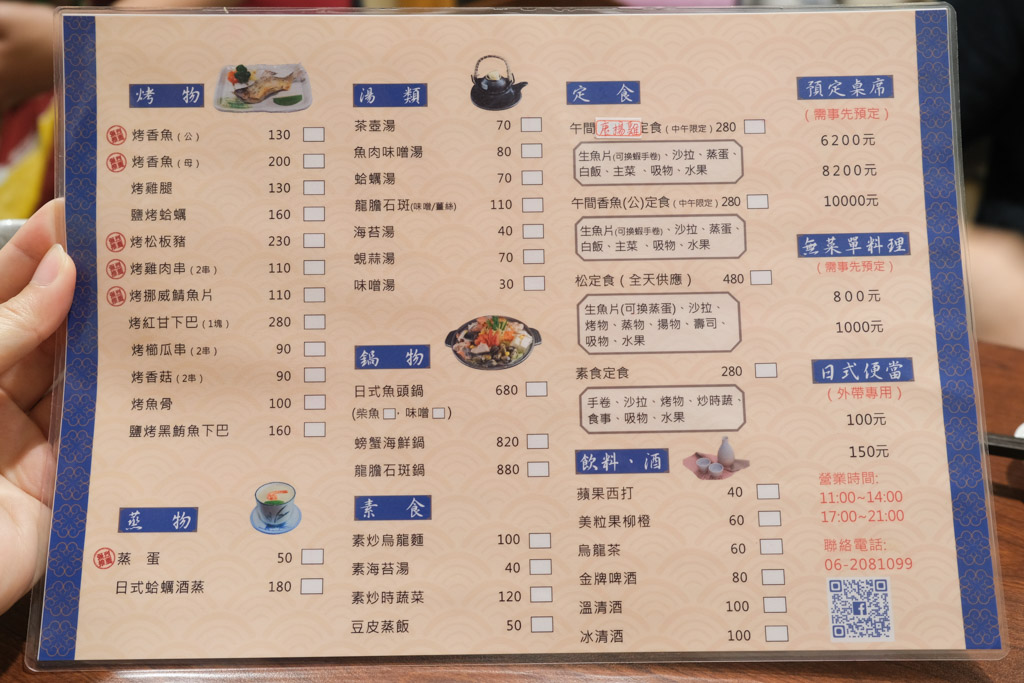 烤物
烤香魚(公) 130
烤香魚(母) 200
烤雞腿 130
鹽烤蛤蠣 160
烤松板豬 230
烤雞肉串(2串) 110
烤挪威鯖魚片 110
烤紅甘下巴(1塊) 280
烤櫛瓜串(2串) 90
烤香菇(2串) 90
烤魚骨 100
鹽烤黑鮪魚下巴 160
蒸物
蒸 蛋 50
日式蛤蠣酒蒸 180
湯類
茶壺湯 70
魚肉味噌湯 80
蛤蠣湯 70
龍膽石斑(味噌/薑絲) 110
海苔湯 40
蜆蒜湯 70
味噌湯 30
鍋物
日式魚頭鍋 680
(柴魚□, 味噌□)
螃蟹海鮮鍋 820
龍膽石斑鍋 880
素食
素炒烏龍麵 100
素海苔湯 40
素炒時蔬菜 120
豆皮蒸飯 50
定食
午間唐揚雞定食(中午限定) 280
生魚片(可換蝦手卷)、沙拉、蒸蛋、
白飯、主菜、吸物、水果
午間香魚(公)定食(中午限定) 280
生魚片(可換蝦手卷)、沙拉、蒸蛋、
白飯、主菜、吸物、水果
松定食(全天供應) 480
生魚片(可換蒸蛋)、沙拉、
烤物、蒸物、揚物、壽司、
吸物、水果
素食定食 280
手卷、沙拉、烤物、炒時蔬、
食事、吸物、水果
飲料、酒
蘋果西打 40
美粒果柳橙 60
烏龍茶 60
金牌啤酒 80
溫清酒 100
冰清酒 100
預定桌席
(需事先預定)
6200元
8200元
10000元
無菜單料理
(需事先預定)
800元
1000元
日式便當
(外帶專用)
100元
150元
營業時間:
11:00~14:00
17:00~21:00
聯絡電話:
06-2081099